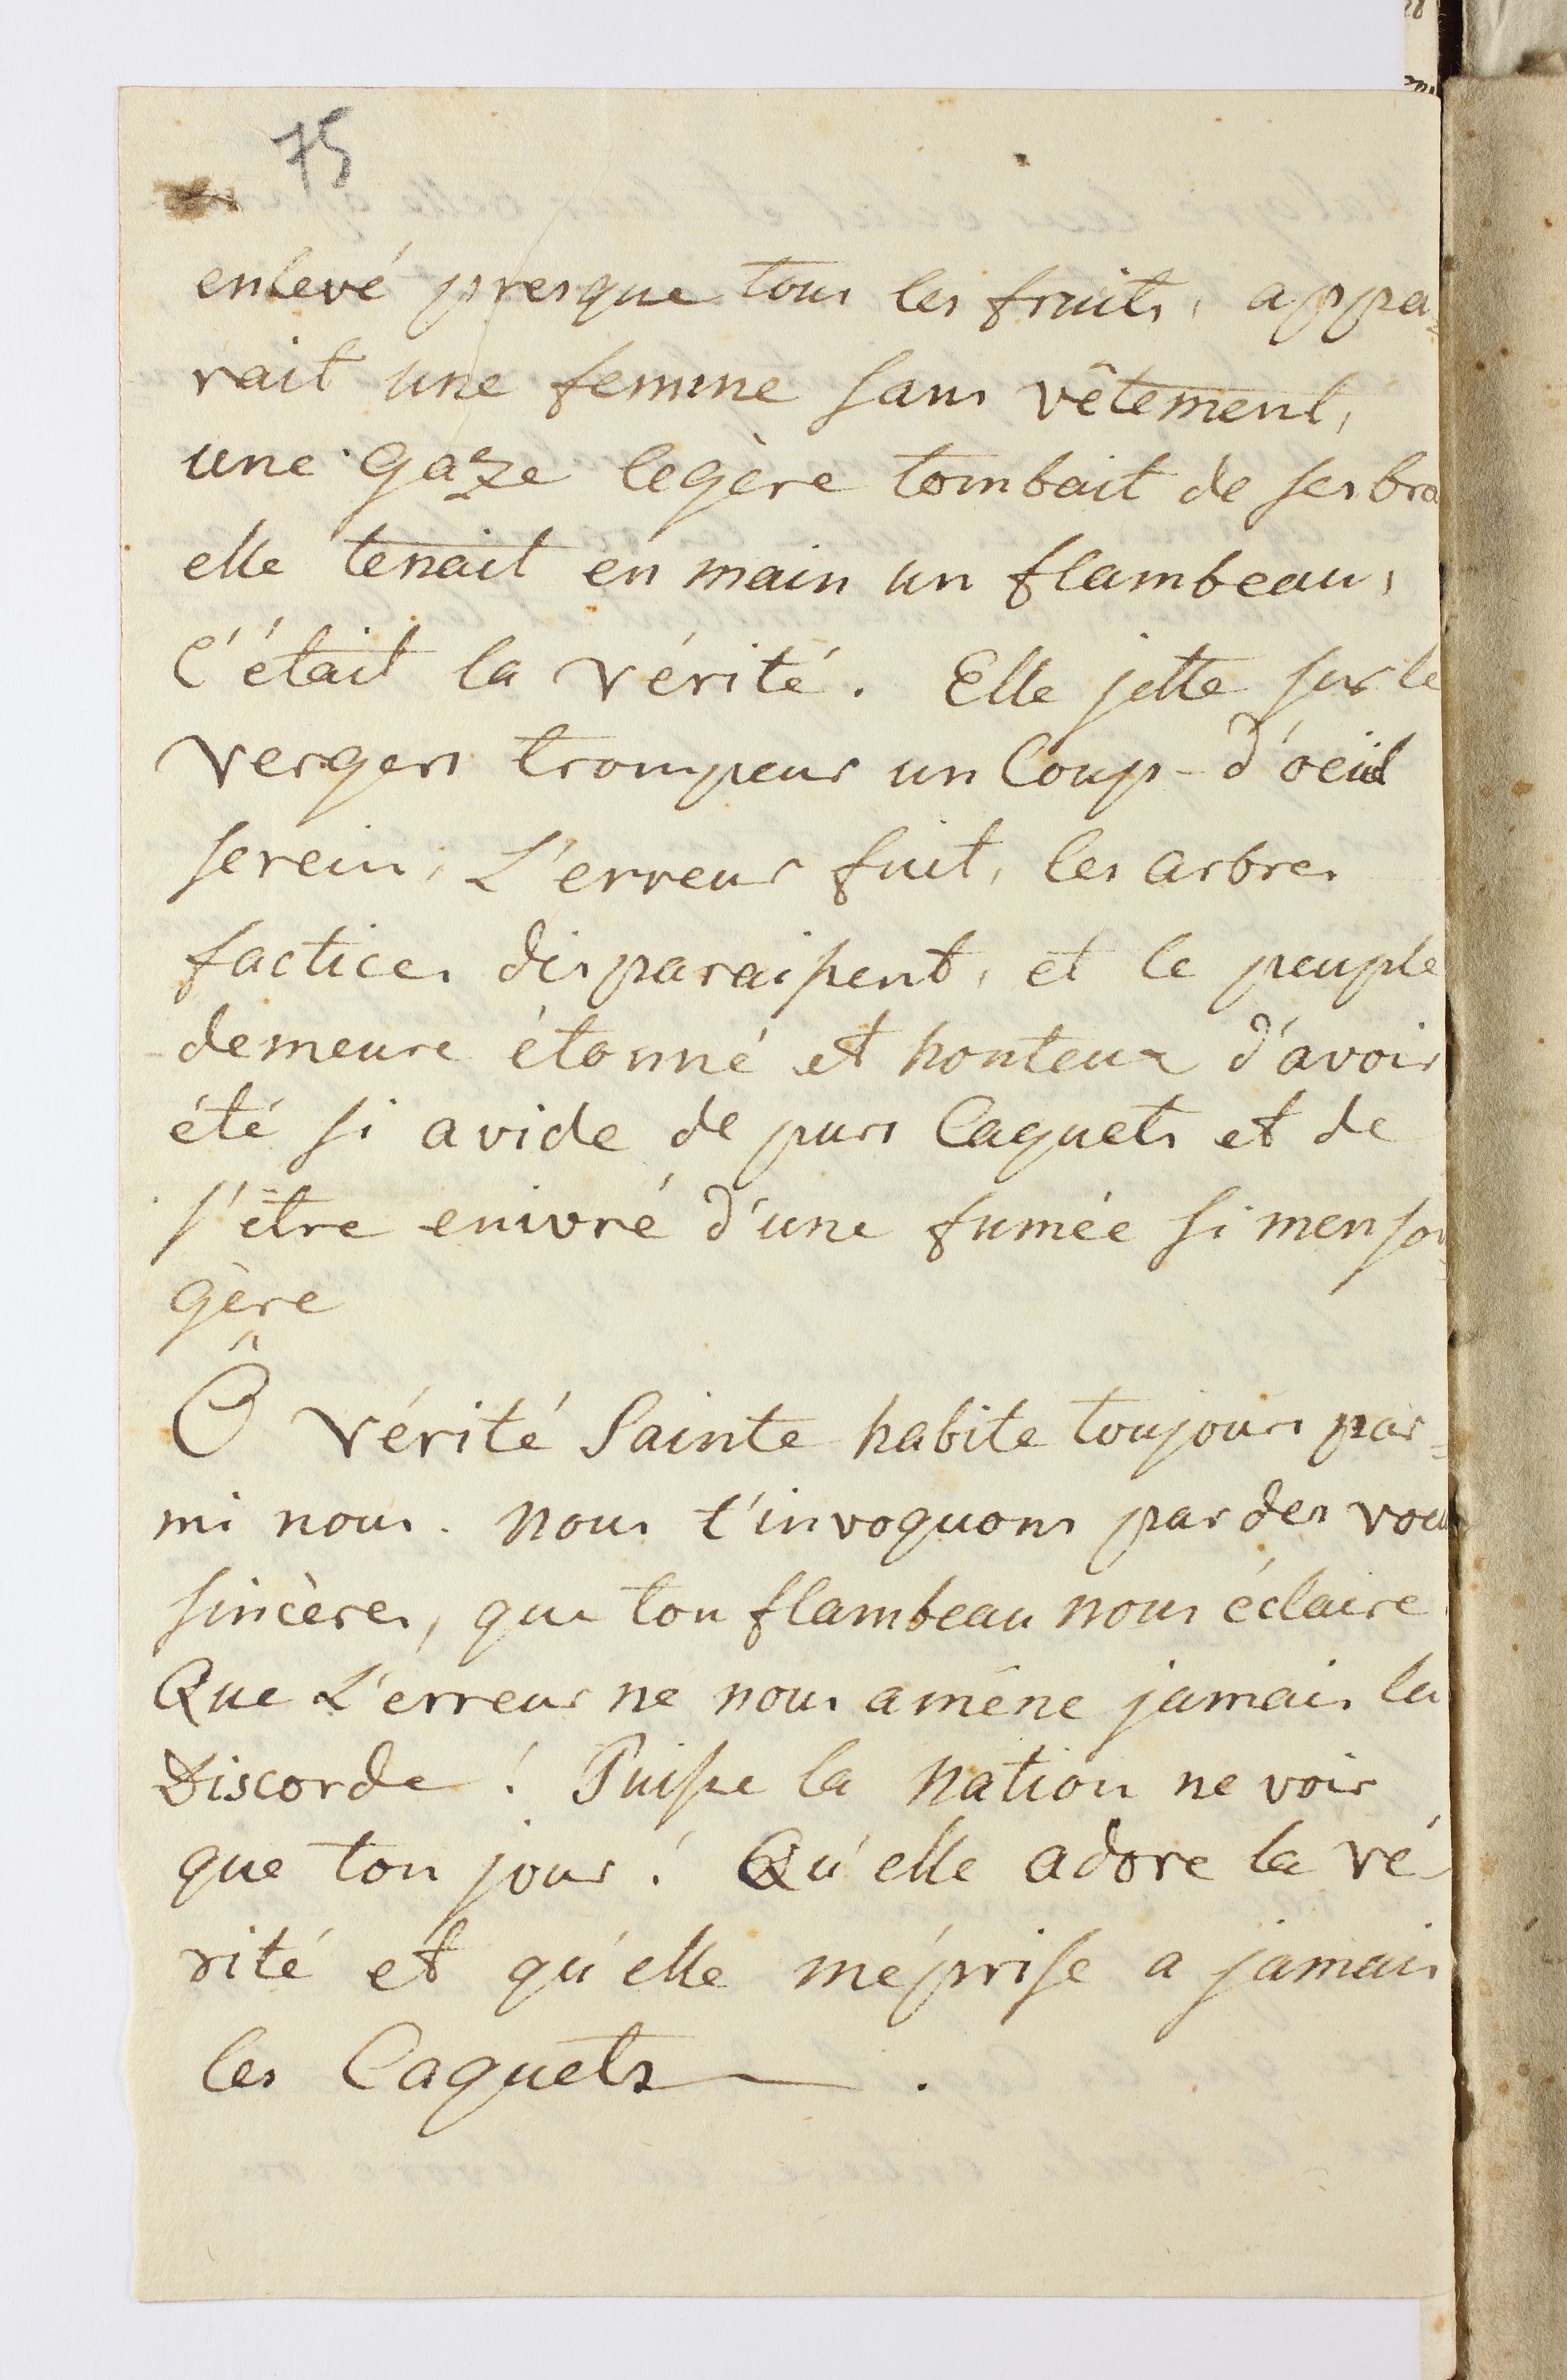 75
enlevé presque tous les fruits, appa=
rait une femme sans vêtement,
une gaze legère tombait de ses bra
elle tenait en main un flambeau,
C'était la vérité. Elle jette sur le
vergers trompeur un Coup-d'oeil
serein, L'erreur fuit, les arbres
factices disparaissent, et le peuple
demeure étonné et honteux d'avoir
été si avide de purs Caquets et de
s'être enivré d'une fumée si menson=
gère
Ô vérité Sainte habite toujours par=
mi nous. nous t'invoquons par des voeu
sincères, que ton flambeau nous éclaire
Que L'erreur ne nous amêne jamais la
Discorde! Puisse la nation ne voir
que ton jour! Qu'elle adore la vé-
rité et qu'elle méprise a jamais
les Caquets.